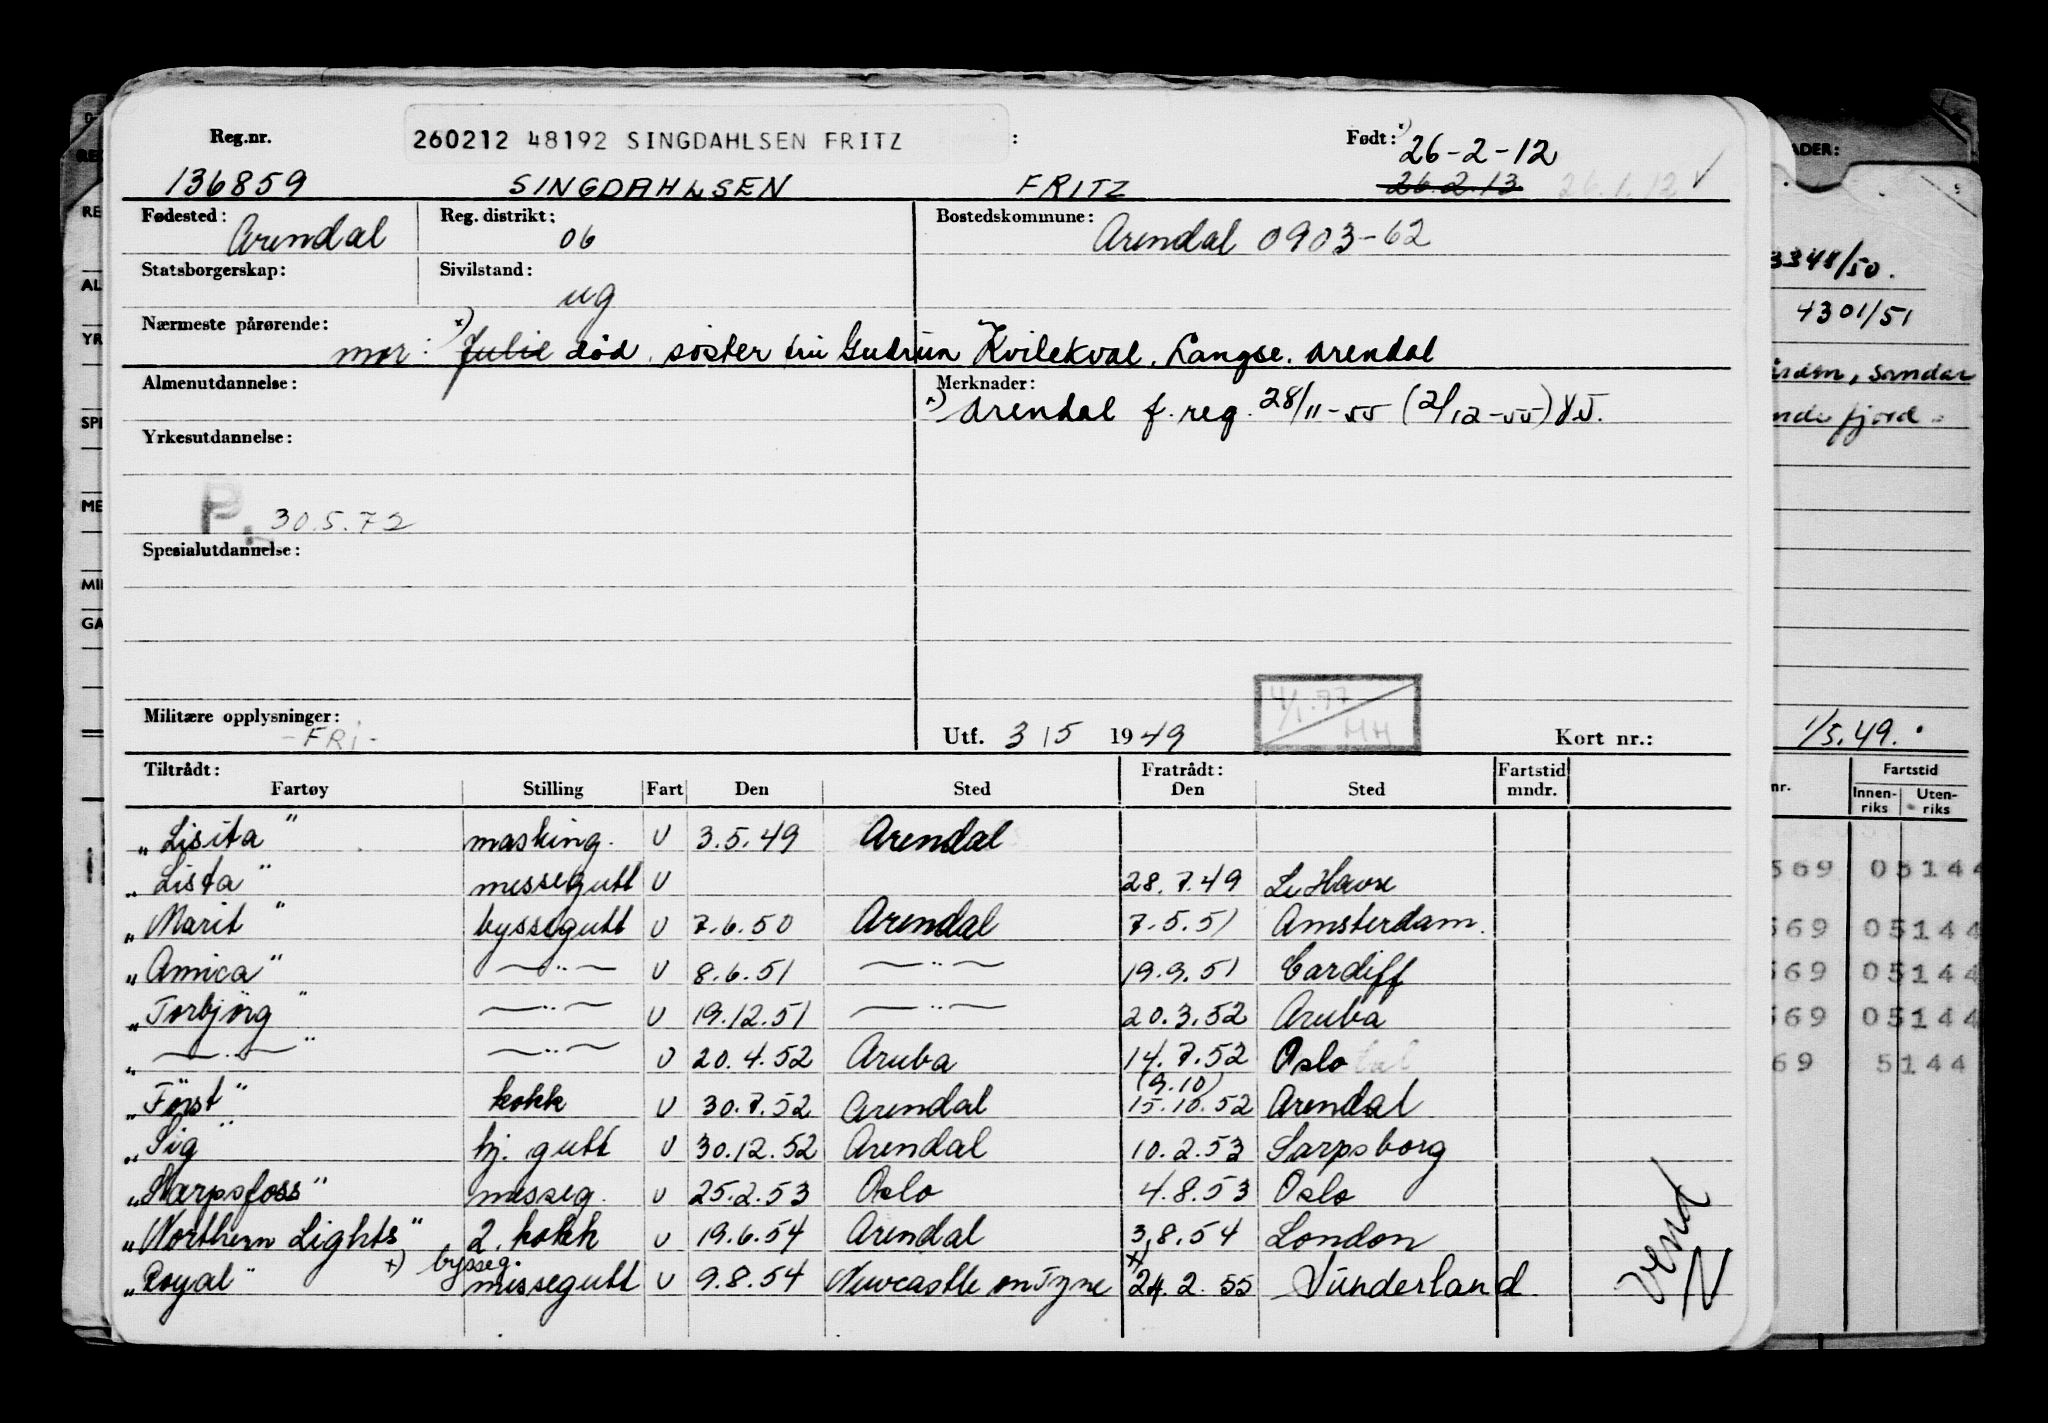 Reg.nr. 260212 48192 SINGDAHLSEN FRITZ : Født: x) 26-2-12
136859 SINGDAHLSEN FRITZ 26.2.13 26.1.12
Fødested: Arendal Reg. distrikt: 06 Bostedskommune: Arendal 0903-62
Statsborgerskap: Sivilstand: ug
Nærmeste pårørende: mor: x) Julie død. søster fru Gudrun Kvilekval. Langse. Arendal
Almenutdannelse: Merknader:
x) Arendal f. reg. 28/11-55 (2/12-55)
Yrkesutdannelse:
P. 30.5.72
Spesialutdannelse:
Militære opplysninger: -FRI- Utf. 3/5 1949 4/1.77 HH Kort nr.:
Tiltrådt: Fratrådt: Fartstid
Fartøy Stilling Fart Den Sted Den Sted mndr.
„Lisita" masking. U 3.5.49 Arendal
„Lista" messegutt U 28.7.49 Le Havre
„Marit" byssegutt U 7.6.50 Arendal 7.5.51 Amsterdam.
„Amica" —〃— U 8.6.51 —〃— 19.9.51 Cardiff
„Torbjörg" —〃— U 19.12.51 —〃— 20.3.52 Aruba
„—〃—" —〃— U 20.4.52 Aruba 14.7.52 Oslo
(9.10)
„Först" kokk U 30.7.52 Arendal 15.10.52 Arendal
„Sig" hj. gutt U 30.12.52 Arendal 10.2.53 Sarpsborg
„Sarpsfoss" messeg. U 25.2.53 Oslo 4.8.53 Oslo
„Northern Lights" 2. kokk U 19.6.54 Arendal 3.8.54 London
x) bysseg. x)
„Royal" messegutt U 9.8.54 Newcastle on Tyne 24.2.55 Sunderland
Vend
ADER:
3348/50.
4301/51
Sandar
fjord.
1/5.49.
Fartstid
nr. Innen-riks Uten-riks
569 05144
569 05144
569 05144
569 05144
69 5144
RE
AL
YR
SPE
ME
MI
GA